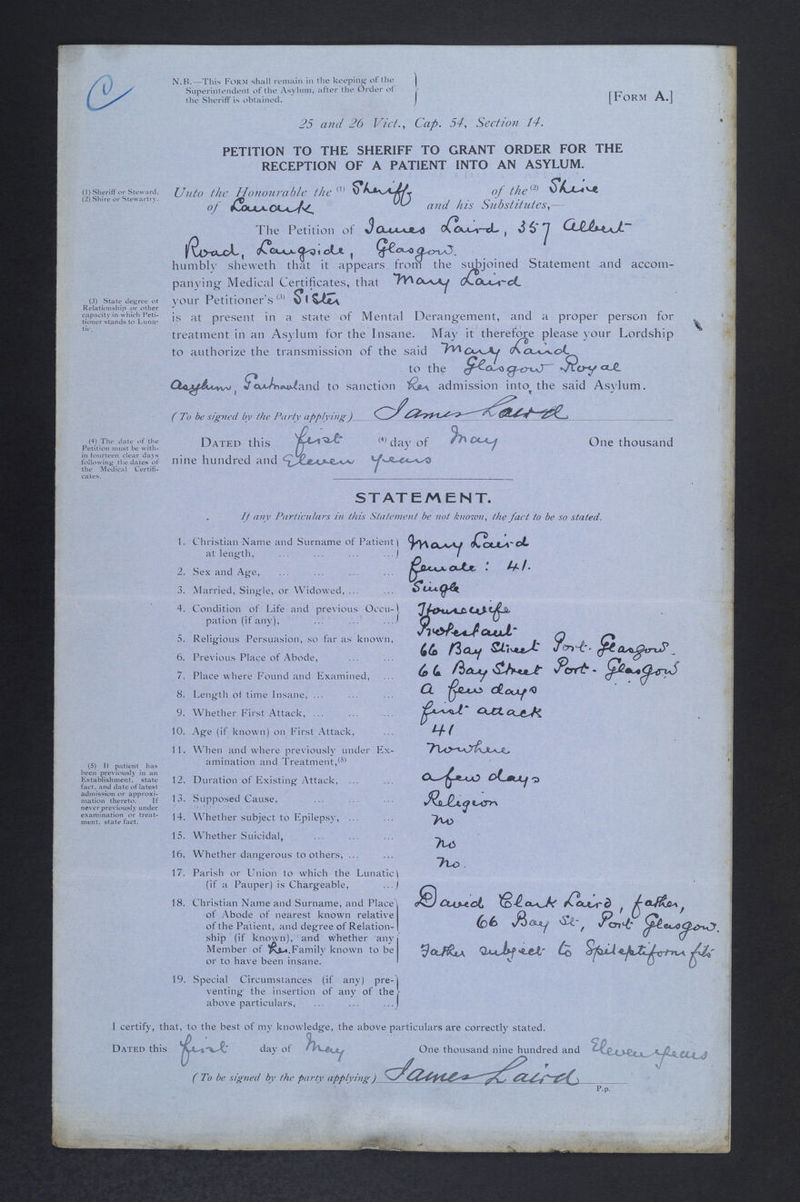 C
N.B.—This FORM shall remain in the keeping of the
Superintendent of the Asylum, after the Order of
the Sheriff is obtained.
[FORM A.]
25 and 26 Vict., Cap. 54, Section 14.
PETITION TO THE SHERIFF TO GRANT ORDER FOR THE
RECEPTION OF A PATIENT INTO AN ASYLUM.
(1) Sheriff or Steward.
(2) Shire or Stewartry.
Unto the Honourable the (1) Sheriff of the (2) Shire
of Lanark and his Substitutes,—
The Petition of James Laird, 357 Albert
Road, Langside, Glasgow.
humbly sheweth that it appears from the subjoined Statement and accom-
panying Medical Certificates, that Mary Laird
(3) State degree of
Relationship or other
capacity in which Peti-
tioner stands to Luna-
tic.
your Petitioner's (3) Sister
is at present in a state of Mental Derangement, and a proper person for
treatment in an Asylum for the Insane. May it therefore please your Lordship
to authorize the transmission of the said Mary Laird
to the Glasgow Royal
Asylum, Gartnavel and to sanction her admission into the said Asylum.
(To be signed by the Party applying) James Laird
(4) The date of the
Petition must be with-
in fourteen clear days
following the dates of
the Medical Certifi-
cates.
DATED this first (4) day of May One thousand
nine hundred and Eleven years
STATEMENT.
If any Particulars in this Statement be not known, the fact to be so stated.
1. Christian Name and Surname of Patient at length, ... Mary Laird
2. Sex and Age, ... Female : 41.
3. Married, Single, or Widowed, ... Single
4. Condition of Life and previous Occu-
pation (if any), ... Housewife
5. Religious Persuasion, so far as known, Protestant
6. Previous Place of Abode, ... 66 Bay Street Port-Glasgow.
7. Place where Found and Examined, ... 66 Bay Street Port-Glasgow
8. Length of time Insane, ... a few days
9. Whether First Attack, ... first attack
10. Age (if known) on First Attack, ... 41
11. When and where previously under Ex-
amination and Treatment,(5) nowhere
(5) If patient has
been previously in an
Establishment, state
fact, and date of latest
admission or approxi-
mation thereto. If
never previously under
examination or treat-
ment, state fact.
12. Duration of Existing Attack, ... a few days
13. Supposed Cause, ... Religion
14. Whether subject to Epilepsy, ... no
15. Whether Suicidal, ... no
16. Whether dangerous to others, ... no.
17. Parish or Union to which the Lunatic
(if a Pauper) is Chargeable, ...
18. Christian Name and Surname, and Place David Clark Laird, father,
of Abode of nearest known relative 66 Bay St, Port Glasgow.
of the Patient, and degree of Relation-
ship (if known), and whether any Father subject to Epileptiform fits
Member of her Family known to be
or to have been insane.
19. Special Circumstances (if any) pre-
venting the insertion of any of the
above particulars, ...
I certify, that, to the best of my knowledge, the above particulars are correctly stated.
DATED this first day of May One thousand nine hundred and Eleven years
(To be signed by the party applying) James Laird
P.p.